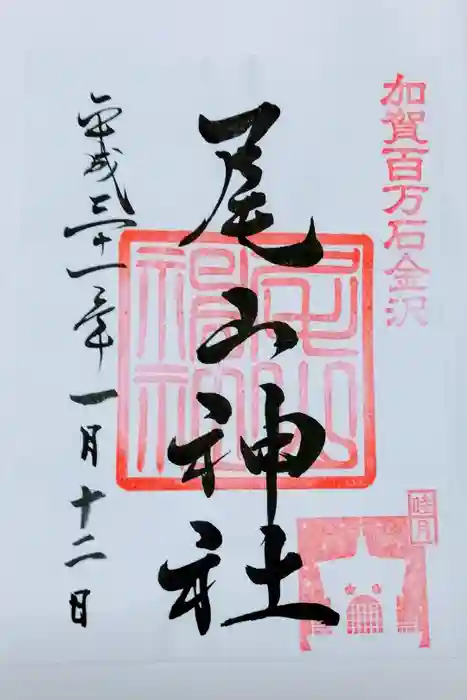 加賀百万石金沢
尾山神社
平成三十一年一月十二日
睦月
尾山神社